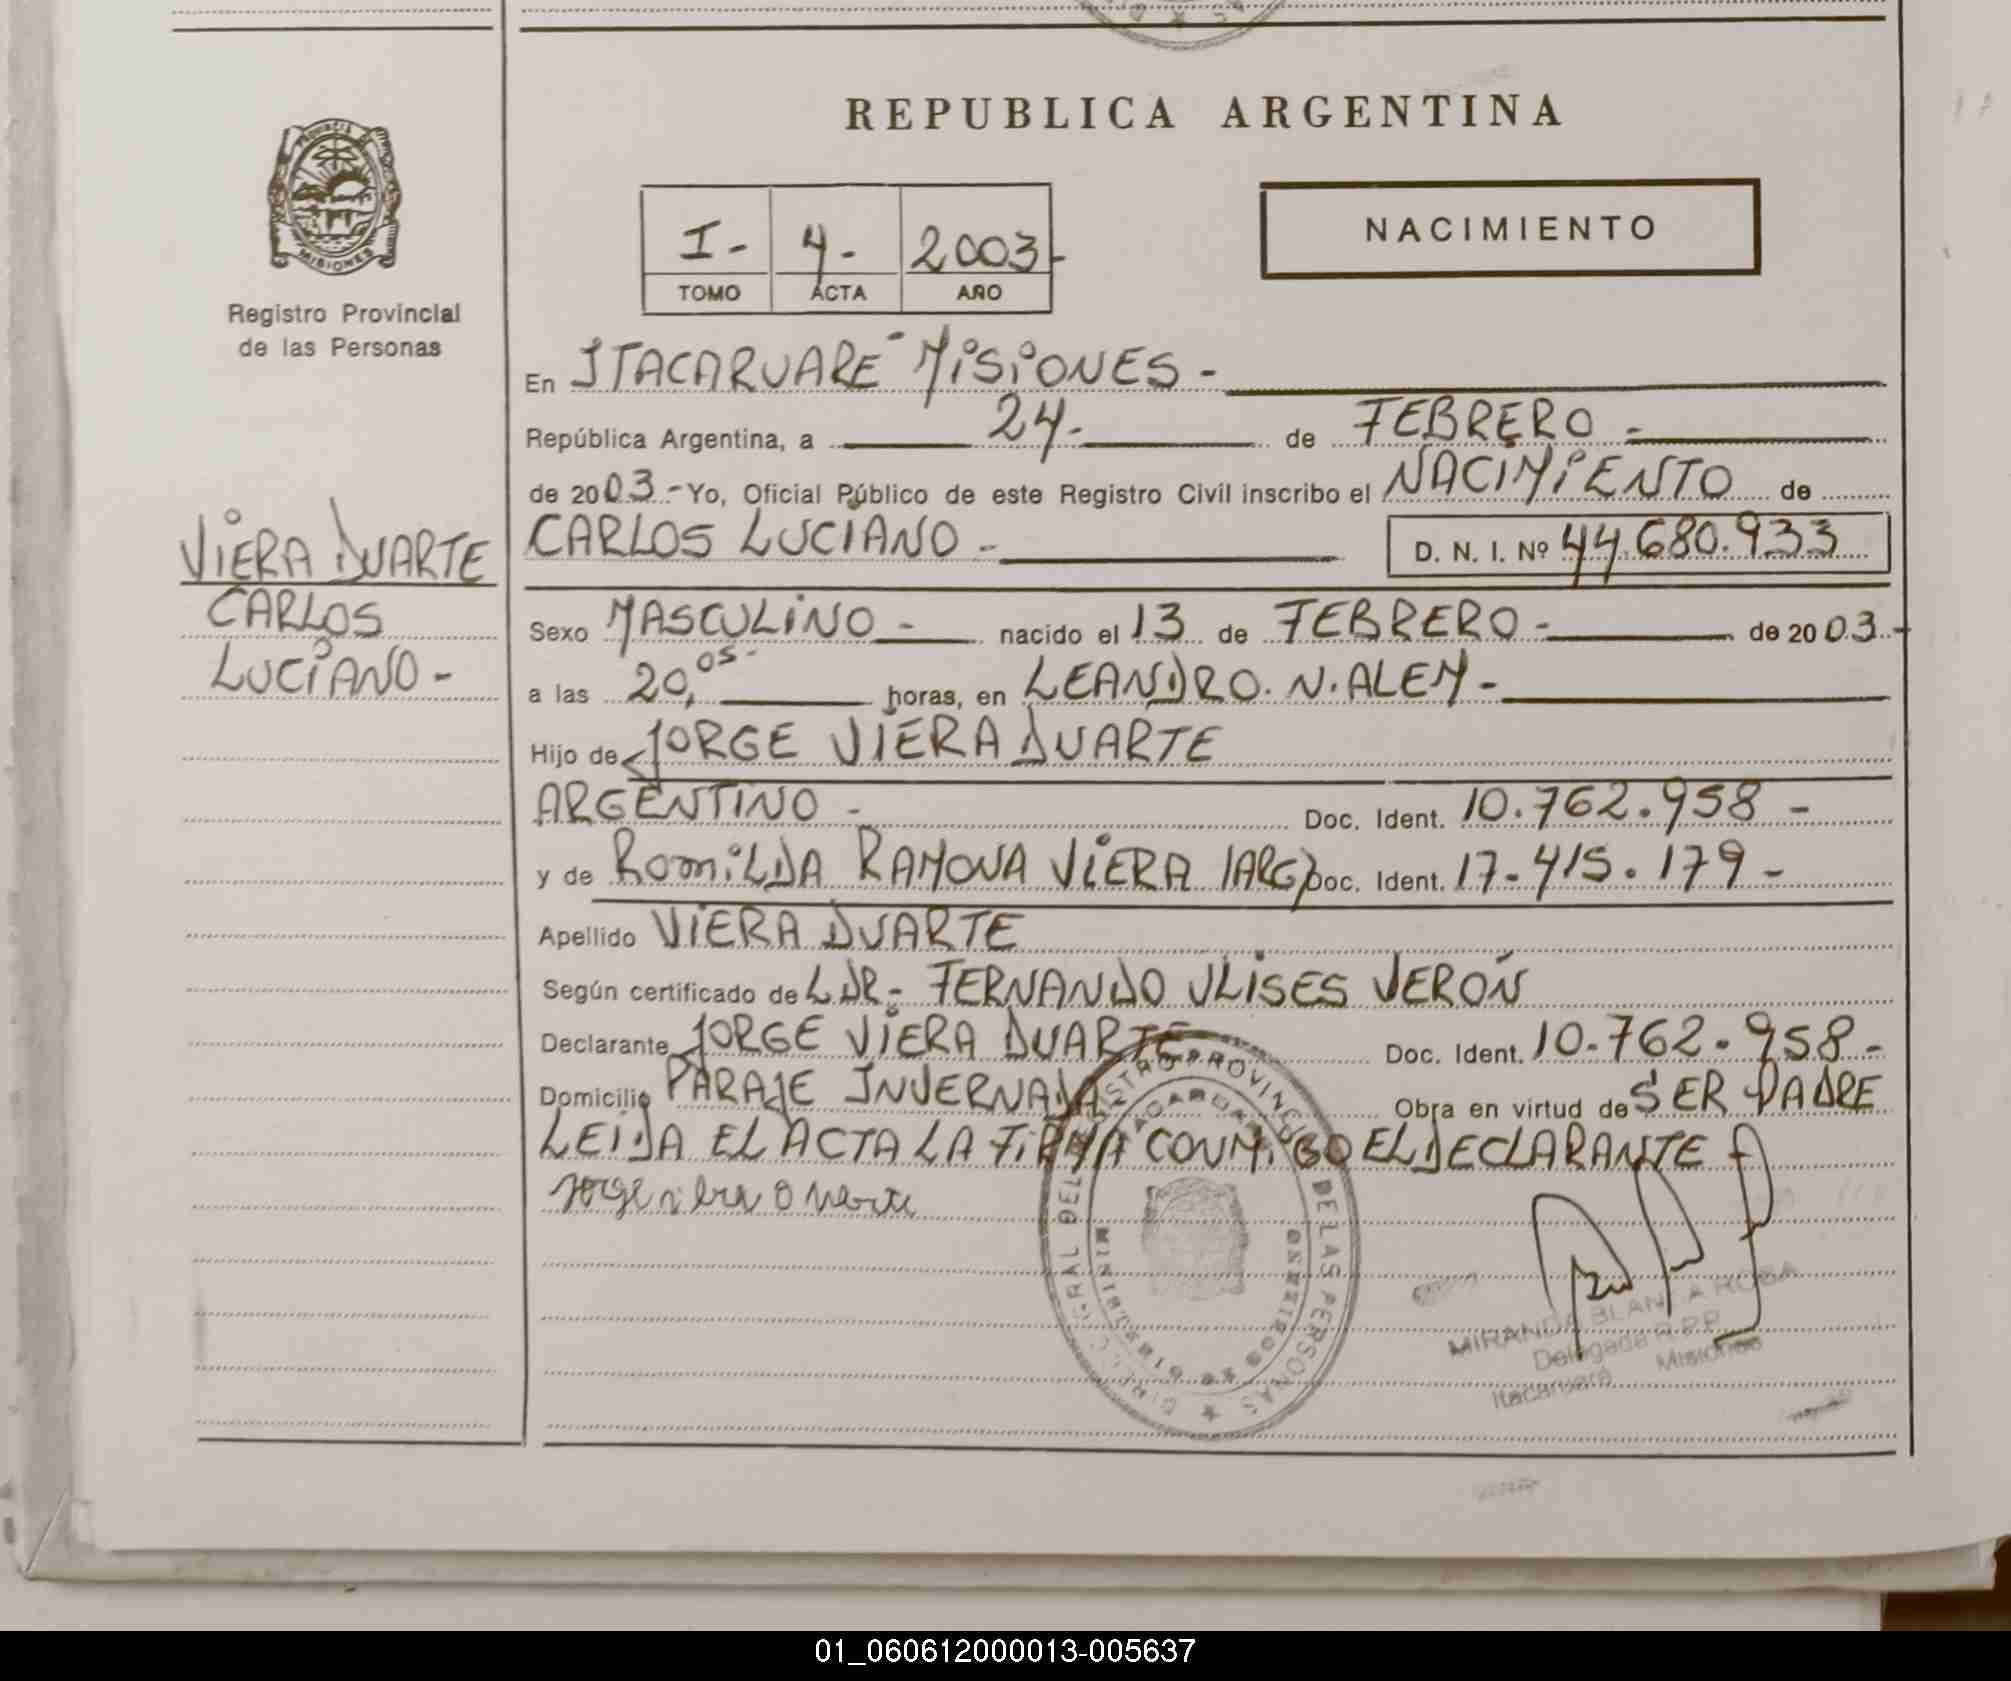 REPUBLICA ARGENTINA
PROVINCIA DE MISIONES
Registro Provincial
de las Personas
I- 4- 2003-
TOMO ACTA AÑO
NACIMIENTO
En ITACARUARE MISIONES -
República Argentina, a 24- de FEBRERO -
de 2003 - Yo, Oficial Público de este Registro Civil inscribo el NACIMIENTO de
CARLOS LUCIANO - D. N. I. Nº 44.680.933
VIERA DUARTE
CARLOS
LUCIANO -
Sexo MASCULINO - nacido el 13 de FEBRERO - de 2003.-
a las 20,05- horas, en LEANDRO. N. ALEM -
Hijo de JORGE VIERA DUARTE
ARGENTINO - Doc. Ident. 10.762.958 -
y de ROMILDA RAMONA VIERA (ARG) Doc. Ident. 17-415.179 -
Apellido VIERA DUARTE
Según certificado de L DR- FERNANDO ULISES VERÓN
Declarante JORGE VIERA DUARTE Doc. Ident. 10-762-958-
Domicilio PARAJE INVERNADA- Obra en virtud de SER PADRE
LEIDA EL ACTA LA FIRMA CONMIGO EL DECLARANTE
Jorge viera Duarte
REGISTRO PROVINCIAL DE LAS PERSONAS
MIRANDA BLANCA ROSA
Delegada R.P.P.
Itacaruaré Misiones
01_060612000013-005637